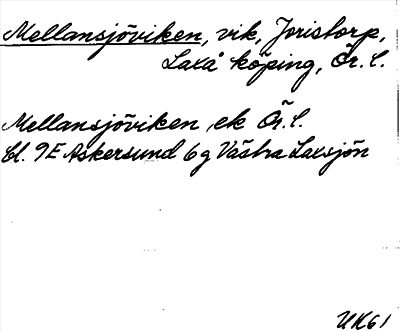 Mellansjöviken, vik, Joristorp,
Laxå köping, Ör. l.
Mellansjöviken, ek Ör. l.
bl. 9E Askersund 6g Västra Laxsjön
UK61